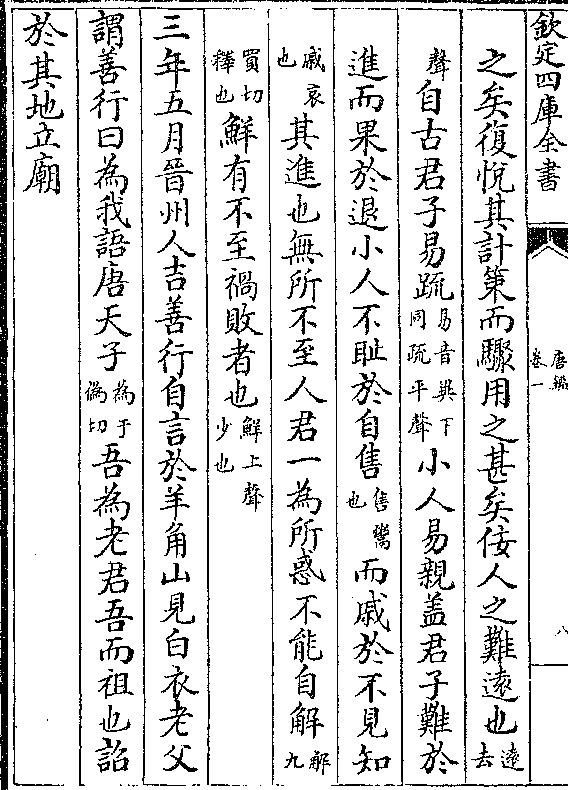 欽定四庫全書
唐鑑
卷一
八
之矣復悦其計策而驟用之甚矣佞人之難遠也遠去
聲自古君子易疏易音異下同疏平聲小人易親盖君子難於
進而果於退小人不耻於自售售鬻也而戚於不見知
戚哀也其進也無所不至人君一為所惑不能自解解九
買切釋也鮮有不至禍敗者也鮮上聲少也
三年五月晉州人吉善行自言於羊角山見白衣老父
謂善行曰為我語唐天子為于偽切吾為老君吾而祖也詔
於其地立廟